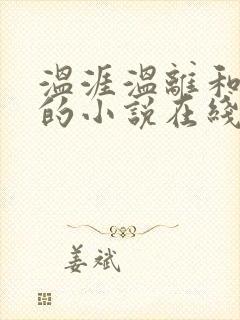 温涯温離和
的小說在綫
姜斌